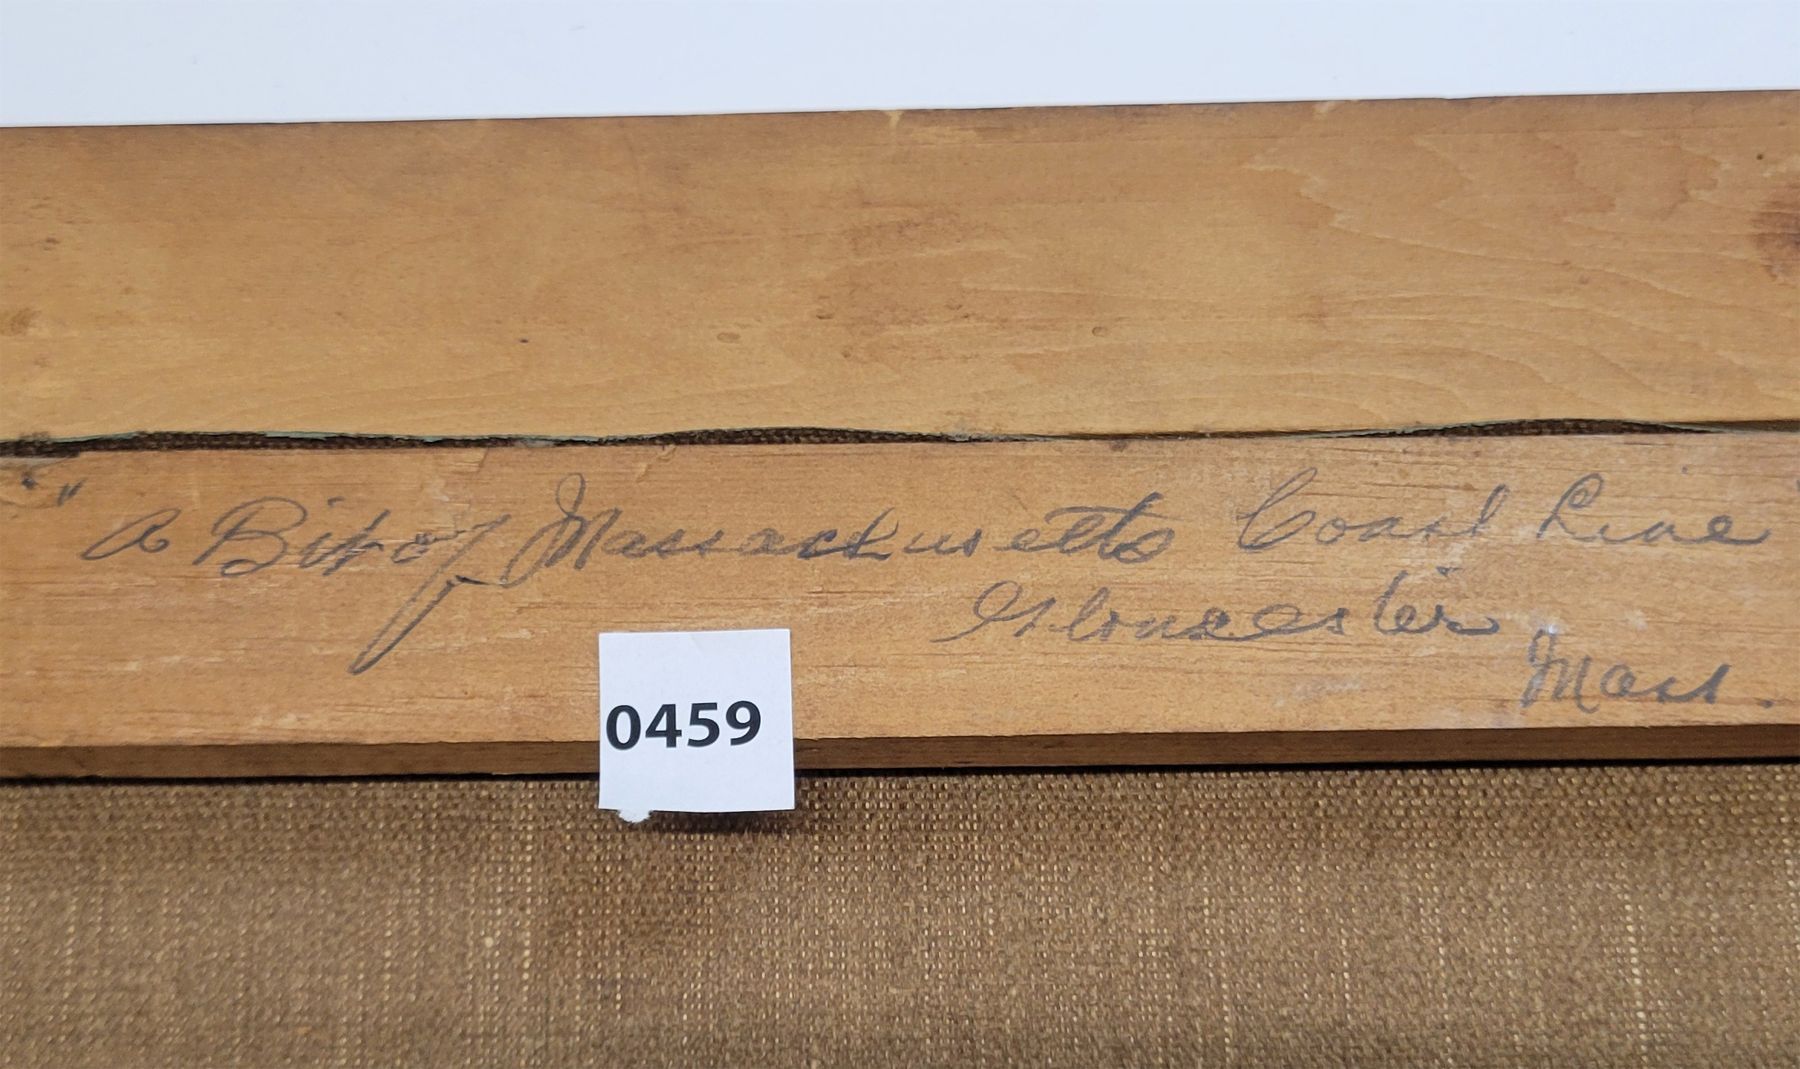 "A Bit of Massachusetts Coast Line"
Gloucester
Mass.
0459